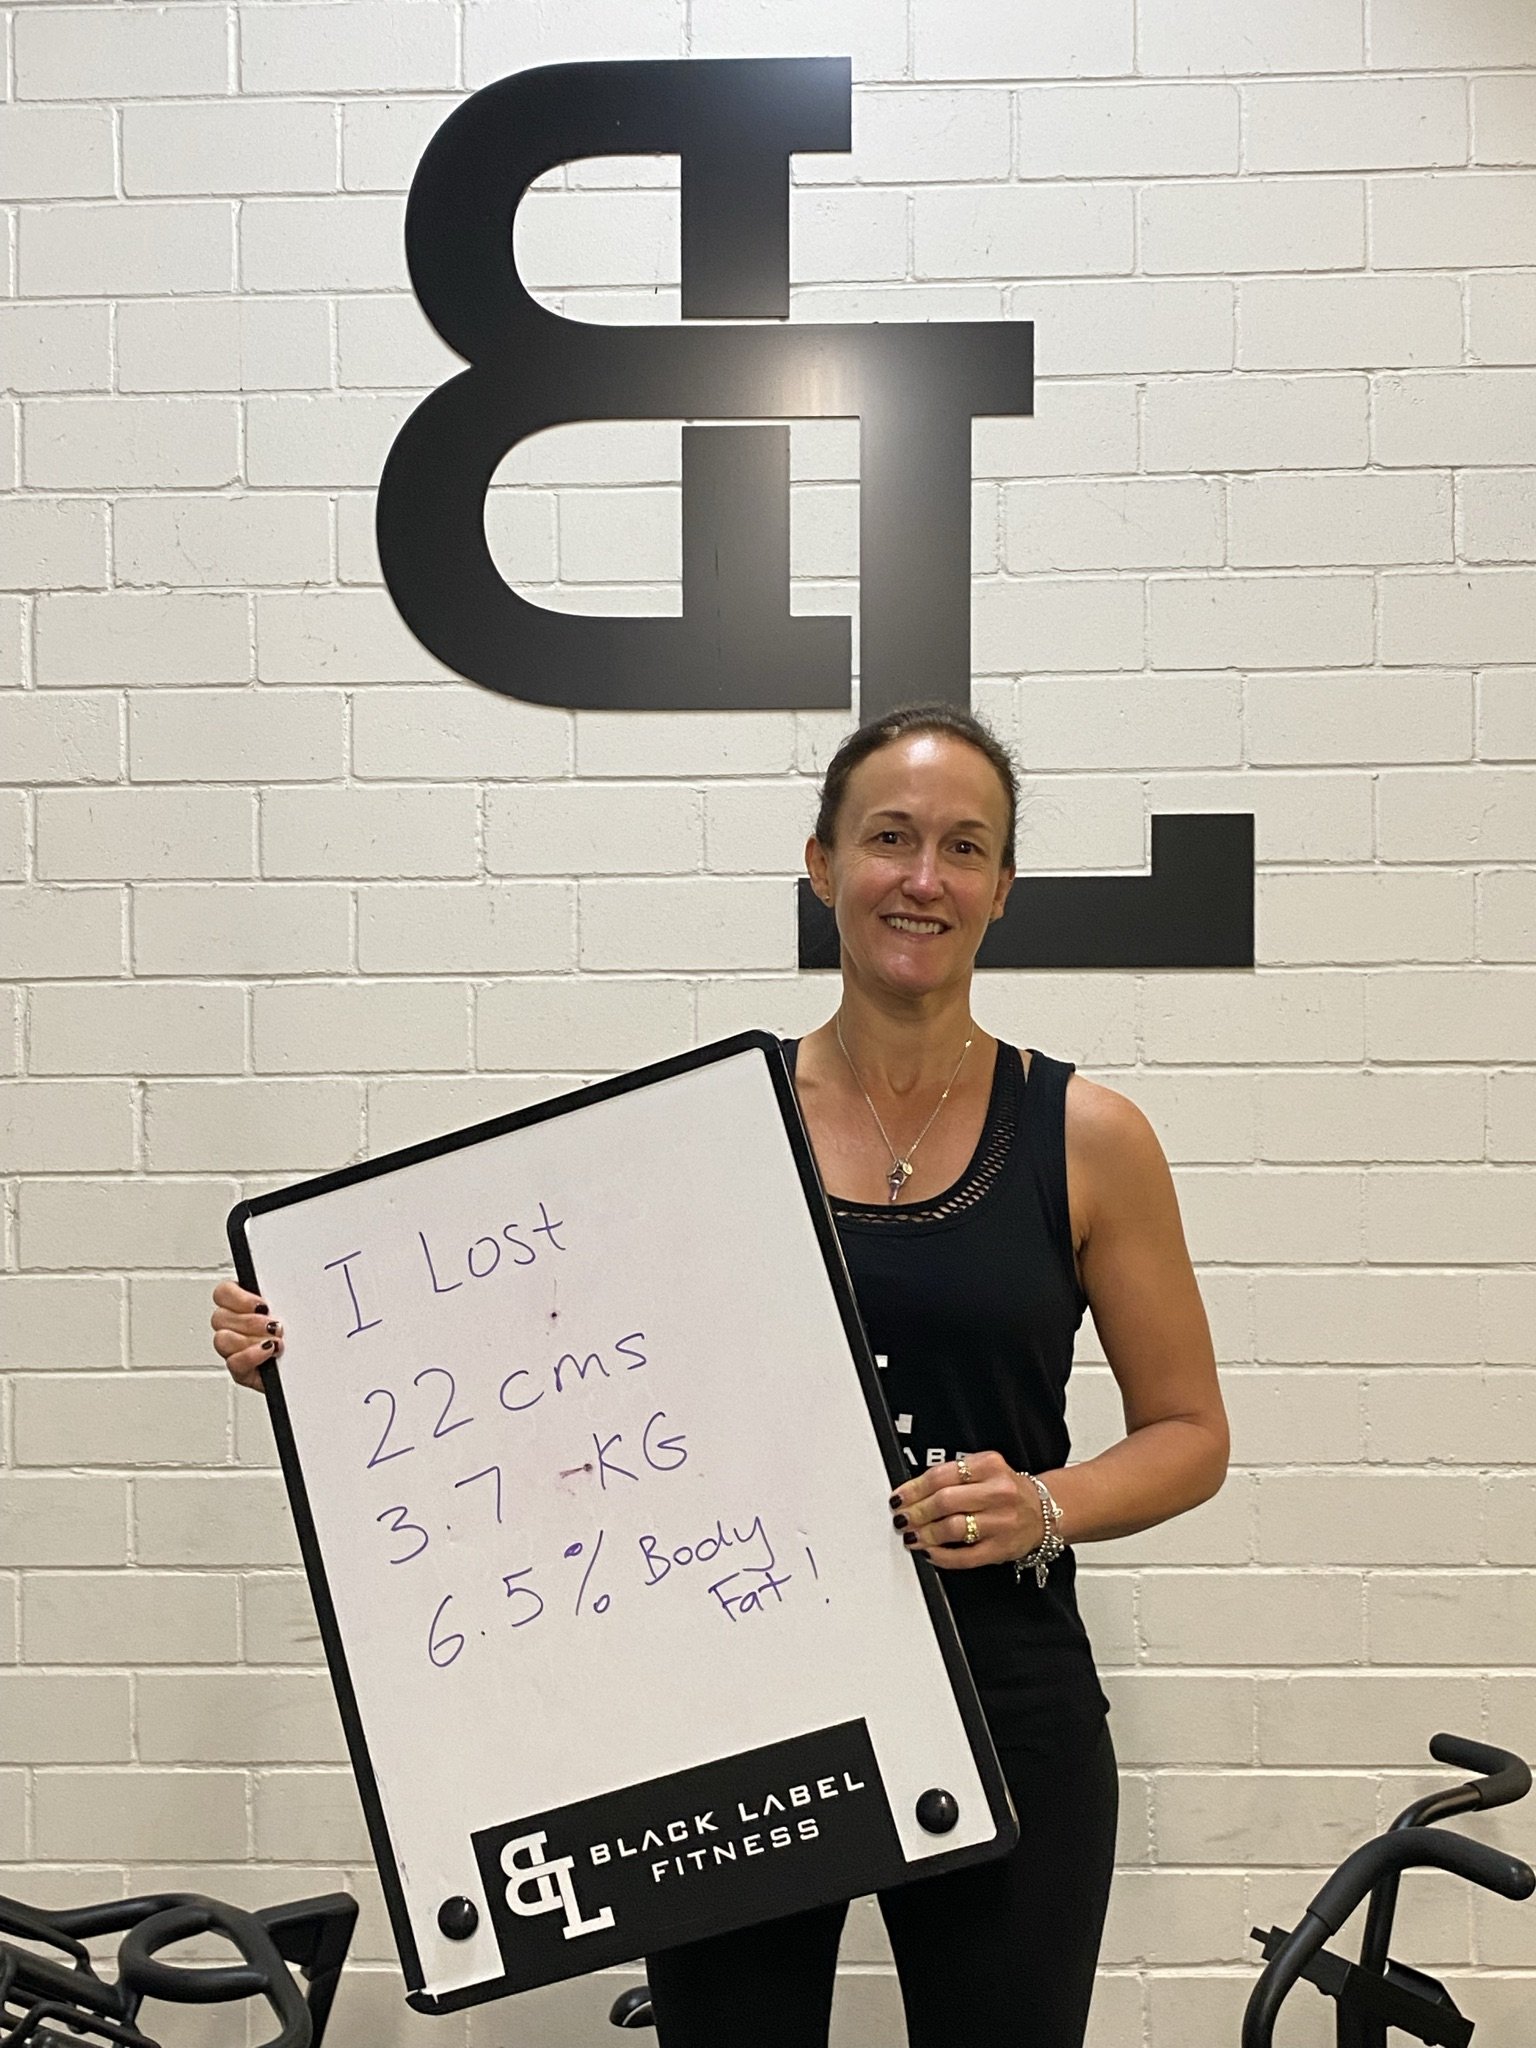 BL
I Lost
22 cms
3.7 -KG
6.5% Body
Fat!
BL BLACK LABEL
FITNESS
ABE